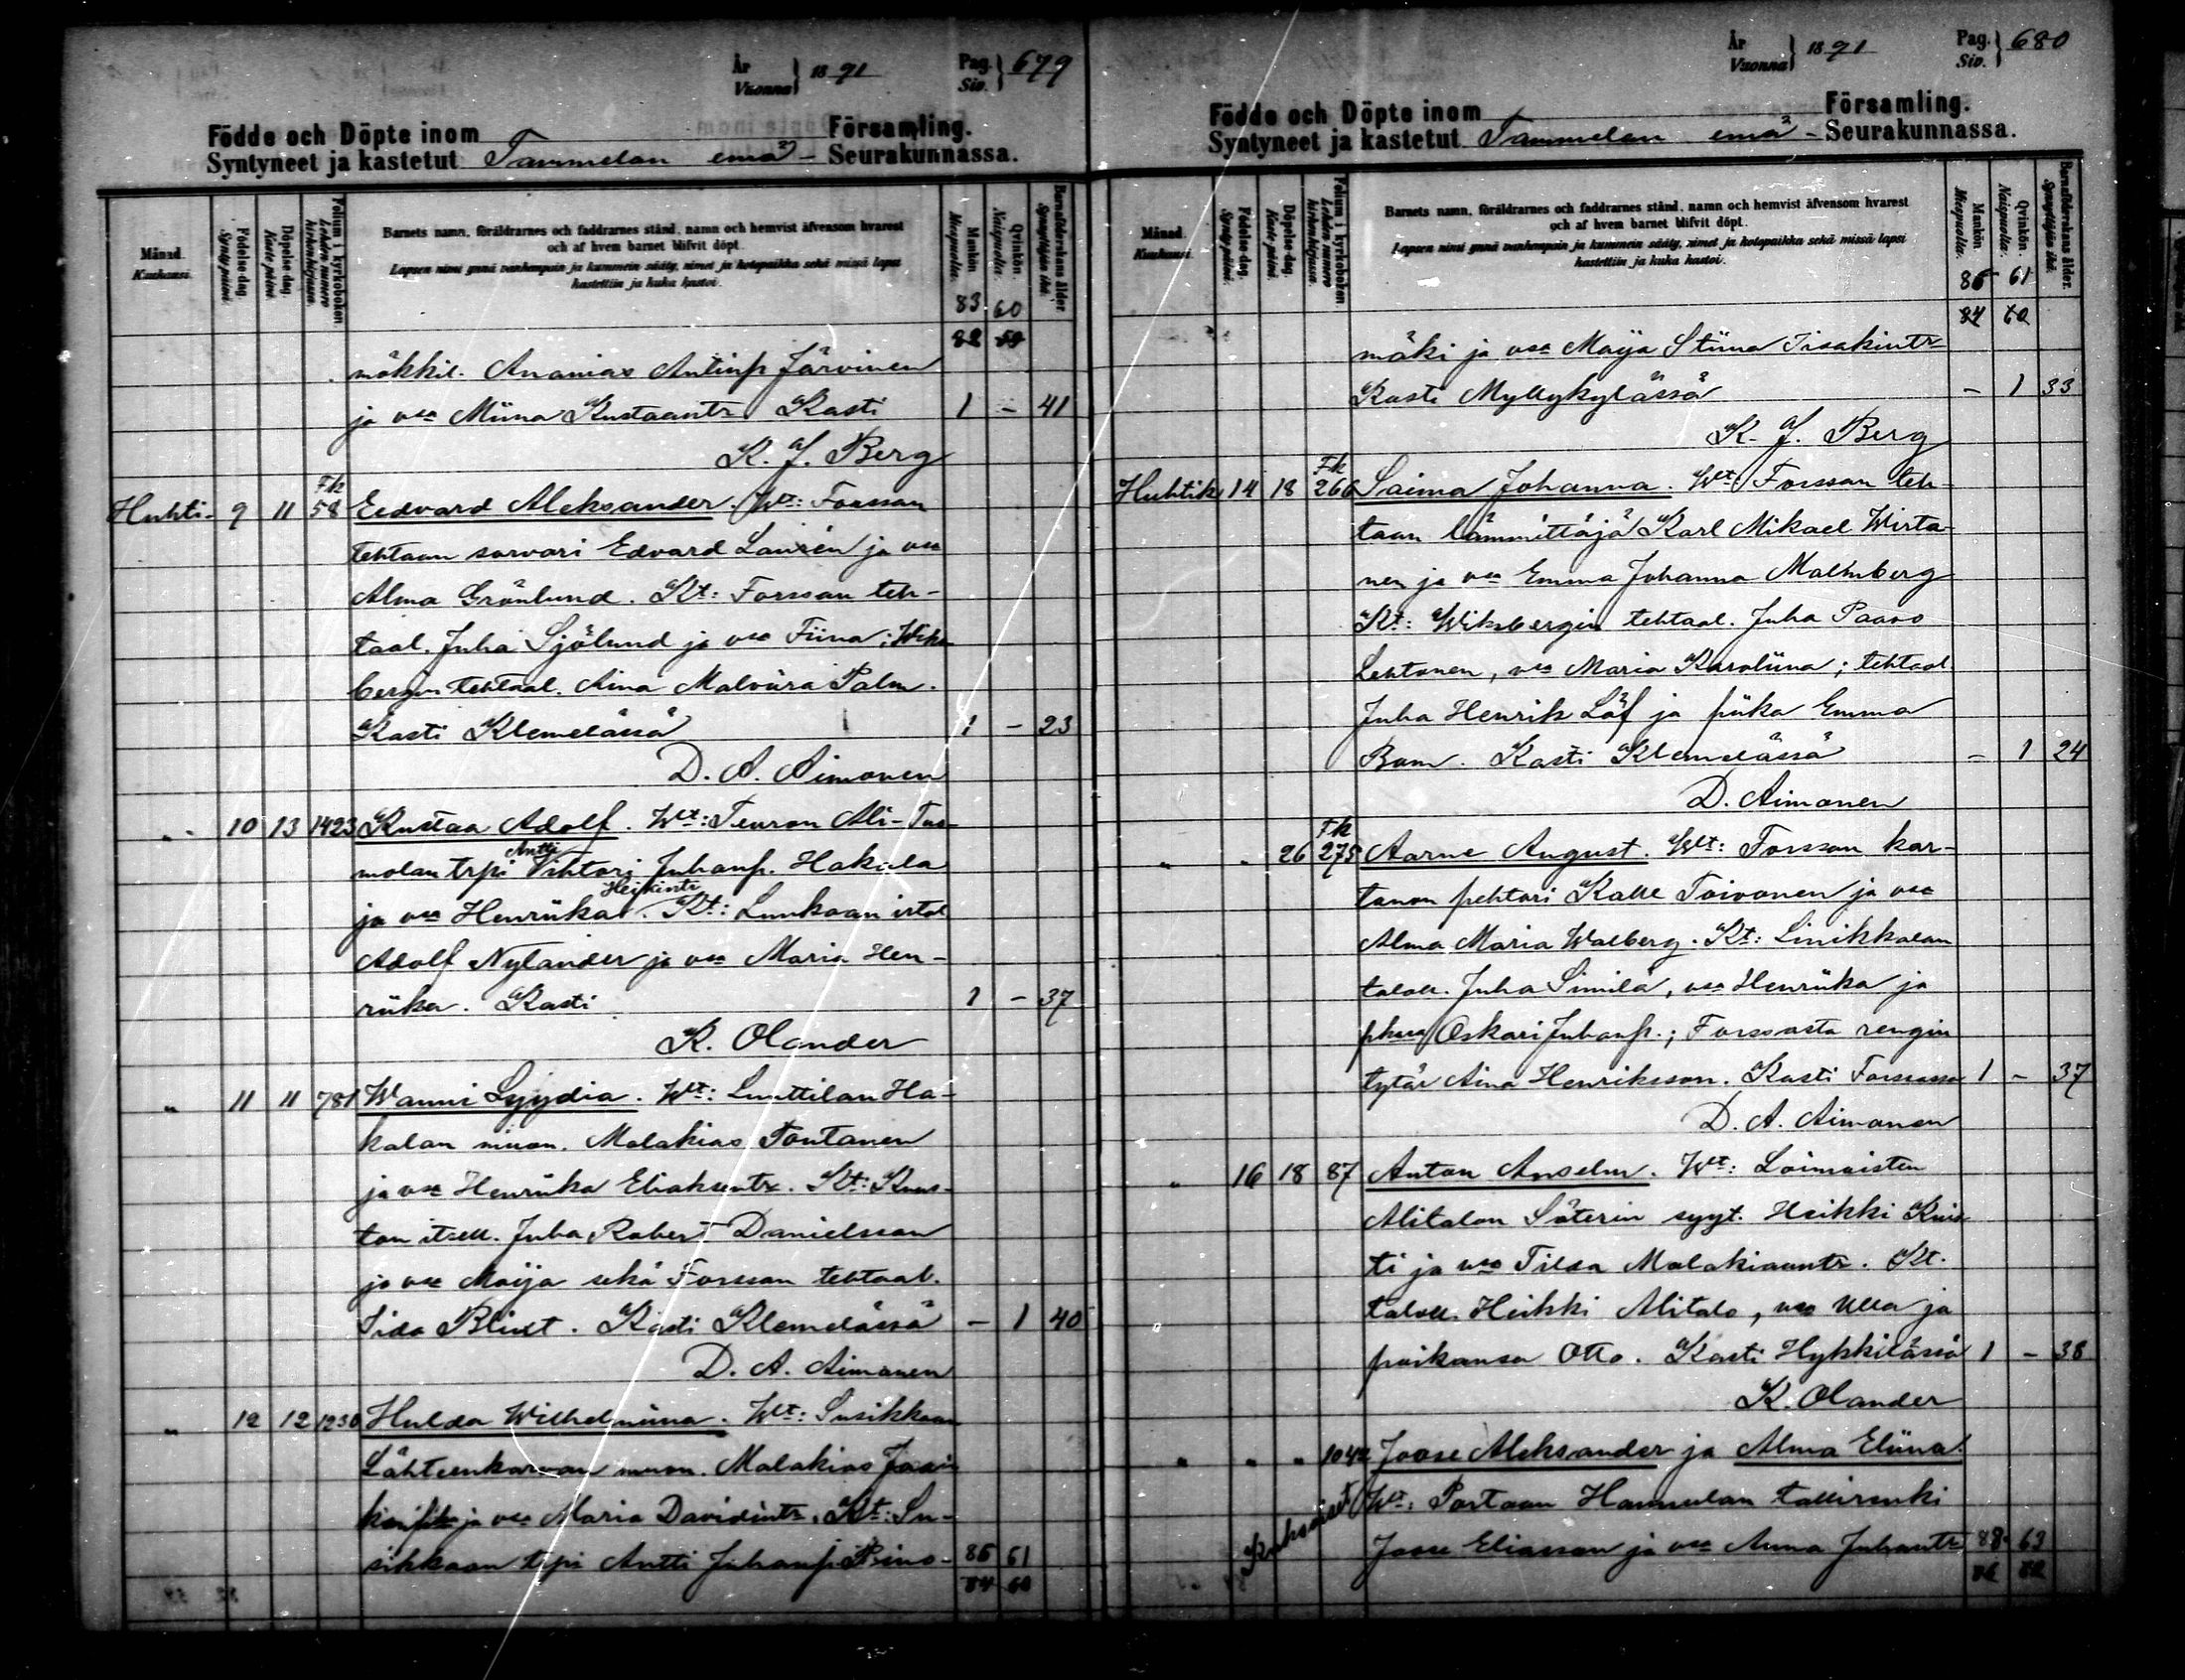 År
Vuonna } 1891
Pag.
Siv. } 679
Födde och Döpte inom Församling.
Syntyneet ja kastetut Tammelan emä- Seurakunnassa.
Månad. Kuukausi.
Födelse-dag. Syntypäivä.
Döpelse-dag. Kaste-päivä.
Folium i kyrkoboken. Lehden numero kirkonkirjassa.
Barnets namn, föräldrarnes och faddrarnes stånd, namn och hemvist äfvensom hvarest
och af hvem barnet blifvit döpt.
Lapsen nimi ynnä vanhempain ja kummein sääty, nimet ja kotopaikka sekä missä lapsi
kastettiin ja kuka kastoi.
Mankön. Miespuolta.
Qvinkön. Naispuolta.
Barnaföderskans ålder. Synnyttäjän ikä.
83 60
82 59
mökkil. Ananias Antinp Järvinen
ja vsa Miina Kustaantr Kasti 1 - 41
K. J. Berg
Huhti- 9 11 Fk 58 Eedvard Aleksander. Wt: Forssan
tehtaan sorvari Edvard Laurén ja vsa
Alma Grönlund. Kt: Forssan teh-
taal. Juha Sjölund ja vsa Fiina; Wiks
bergin tehtaal. Aina Malviira Palm.
Kasti Klemelässä 1 - 23
D. A. Aimonen
-"- 10 13 1423 Kustaa Adolf. Wt: Teuron Ali-Tuo
molan trpi Antti Vihtori Juhanp. Hakala
ja vsa Henriika Heikintr. Kt: Lunkaan istol
Adolf Nylander ja vsa Maria Hen-
riika. Kasti 1 - 37
K. Olander
" 11 11 781 Wanni Lyydia. Wt: Luuttilan Ha-
kalan muon. Malakias Tontanen
ja vsa Henriika Eliakuntr. Kt: Kuus-
ton itsell. Juha Robert Danielsson
ja vsa Maija sekä Forssan tehtaal.
Iida Blixt. Kasti Klemelässä - 1 40
D. A. Aimonen
" 12 12 1230 Hulda Wilhelmiina. Wt: Susikkaan
Lähteenkorvan muon. Malakias Jaa
kinp ja vsa Maria Davidintr. Kt: Su-
sikkaan trpi Antti Juhanp Rino-
85 61
84 60
År
Vuonna } 1891
Pag.
Siv. } 680
Födde och Döpte inom Församling.
Syntyneet ja kastetut Tammelan emä- Seurakunnassa.
Månad. Kuukausi.
Födelse-dag. Syntypäivä.
Döpelse-dag. Kaste-päivä.
Folium i kyrkoboken. Lehden numero kirkonkirjassa.
Barnets namn, föräldrarnes och faddrarnes stånd, namn och hemvist äfvensom hvarest
och af hvem barnet blifvit döpt.
Lapsen nimi ynnä vanhempain ja kummein sääty, nimet ja kotopaikka sekä missä lapsi
kastettiin ja kuka kastoi.
Mankön. Miespuolta.
Qvinkön. Naispuolta.
Barnaföderskans ålder. Synnyttäjän ikä.
85 61
84 60
mäki ja vsa Maija Stiina Iisakintr
Kasti Myllykylässä - 1 33
K. J. Berg
Huhtik 14 18 Fk 266 Saima Johanna. Wt: Forssan teh-
taan lämmittäjä Karl Mikael Wirta-
nen ja vsa Emma Johanna Malmberg
Kt: Wiksbergin tehtaal. Juha Paavo
Lehtonen, vsa Maria Karoliina; tehtaal.
Juha Henrik Löf ja piika Emma
Bom. Kasti Klemelässä - 1 24
D. Aimonen
" " 26 Fk 275 Aarne August. Wt: Forssan kar-
tanon pehtori Kalle Toivonen ja vsa
Alma Maria Walberg. Kt: Linikkalan
taloll. Juha Simila, vsa Henriika ja
Oskari Juhanp.; Forssasta rengin
tytär Aina Henriksson. Kasti Forssassa 1 - 37
D. A. Aimonen
" 16 18 87 Anton Anselm. Wt: Loimaisten
Alitalon Säterin syyt. Heikki Kuis
ti ja vsa Tilda Malakiaantr. Kt.
taloll. Heikki Alitalo, vsa Ulla ja
poikansa Otto. Kasti Hykkilässä 1 - 38
K. Olander
" " " 1042 Joose Aleksander ja Alma Eliina.
Kaksoiset Wt: Portaan Hannulan tallirenki
Joose Eliasson ja vsa Anna Juhantr 88 63
86 62